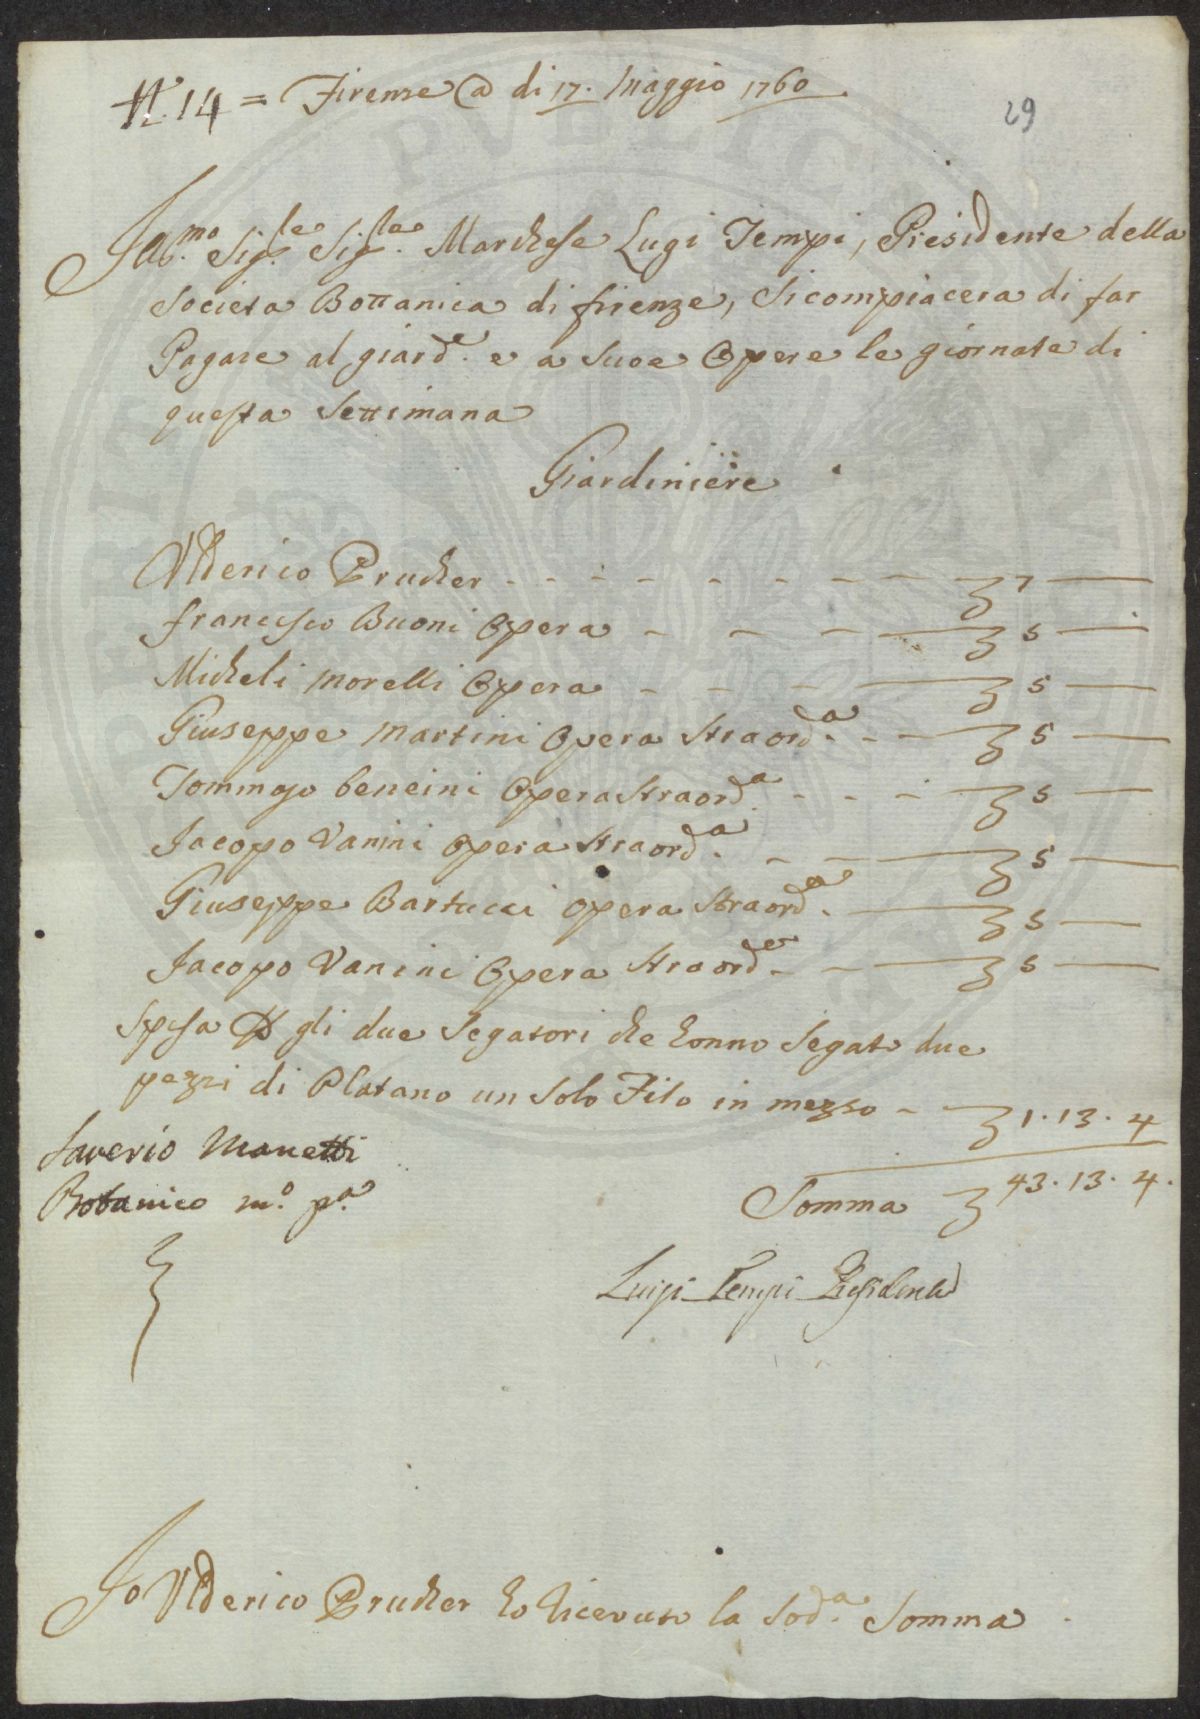 N. 14 = Firenze @ di 17. Maggio 1760
29
Ill.mo Sig.le Sig.le Marchese Lugi Tempi, Presidente della
Societa Bottanica di firenze, Si compiacera di far
Pagare al giard.e e a Suoe Opere le giornate di
questa Settimana
Giardiniere
Vlderico Prucher - - - - - - - 7 —
francesco Buoni Opera - - - 5 —
Micheli Morelli Opera - - - 5 —
Giuseppe Martini Opera Straord.a - - 5 —
Tommaso bencini Opera Straord.a - - - 5 —
Jacopo Vanini Opera Straord.a - - 5 —
Giuseppe Bartucci Opera Straord.a 5 —
Jacopo Vanini Opera Straord.e - - 5 —
Spesa P gli due Segatori che honno Segato due
pezzi di Platano un Solo Filo in mezzo - 1. 13. 4
Saverio Manetti
Botanico m.o p.a
Somma 43. 13. 4.
Luigi Tempi Presidente
Io Vlderico Prucher ho Ricevuto la Sod.a Somma